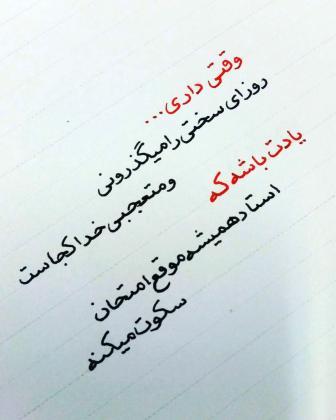 وقتی داری...
روزای سختی رامیگذرونی
ومتعجبی خداکجاست
یادت باشه که
استادهمیشه موقع امتحان
سکوت میکنه